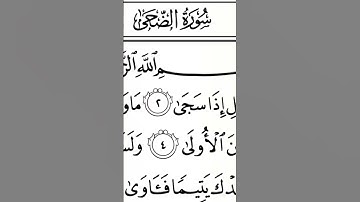 سُورَةُ الضُّحَىٰ
ـسْمِ ٱللَّهِ ٱلرَّ
لِ إِذَا سَجَىٰ ٢ مَا وَ
نَ ٱلْأُولَىٰ ٤ وَلَسَ
دْكَ يَتِيمًا فَـَٔاوَىٰ